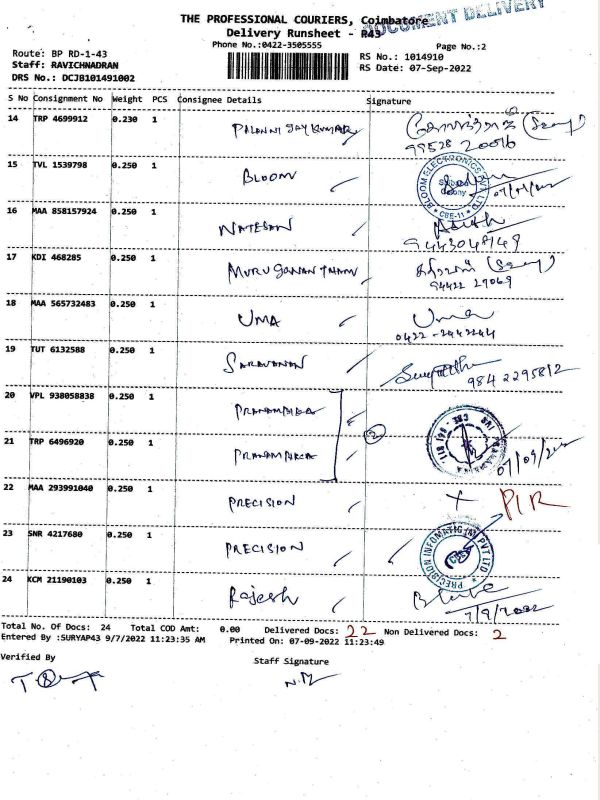 DOCUMENT DELIVERY
THE PROFESSIONAL COURIERS, Coimbatore
Delivery Runsheet - R43
Phone No.:0422-3505555
Page No.:2
Route: BP RD-1-43
RS No.: 1014910
Staff: RAVICHNADRAN
RS Date: 07-Sep-2022
DRS No.: DCJB101491002
S No Consignment No Weight PCS Consignee Details Signature
14 TRP 4699912 0.230 1 PALANNI JAY KUMAR
99528 20016
15 TVL 1539798 0.250 1 BLOOM
BLOOM ELECTRONICS PVT LTD
CBE-11
16 MAA 858157924 0.250 1 NATESAN
9443048149
17 KDI 468285 0.250 1 MURUGANANTHAM
94422 27069
18 MAA 565732483 0.250 1 UMA Uma
0422-2442244
19 TUT 6132588 0.250 1 SARAVANAN
98422 95812
20 VPL 938058838 0.250 1
2
21 TRP 6496920 0.250 1
07/09/2022
22 MAA 293991040 0.250 1 PRECISION X PIR
23 SNR 4217680 0.250 1 PRECISION
PRECISION INFOMATIC (M) PVT LTD
24 KCM 21190103 0.250 1 Rajesh
7/9/2022
Total No. Of Docs: 24 Total COD Amt: 0.00 Delivered Docs: 22 Non Delivered Docs: 2
Entered By :SURYAP43 9/7/2022 11:23:35 AM Printed On: 07-09-2022 11:23:49
Verified By
Staff Signature